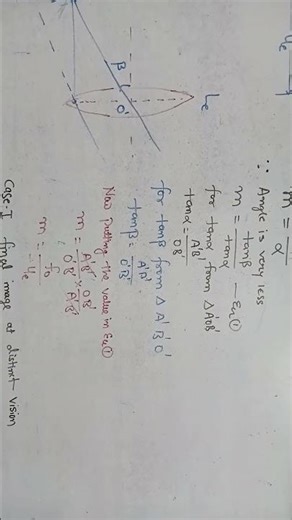 β
O'
Le
m = β/α
∵ Angle is very less
m = tanβ/tanα — Eq ①
for tanα from ΔA'OB'
tanα = A'B'/OB'
for tanβ from ΔA'B'O'
tanβ = A'B'/O'B'
Now putting the value in Eq ①
m = A'B' OB'/O'B' × A'B'
m = fo/-ue
Case-I final image at distinct vision